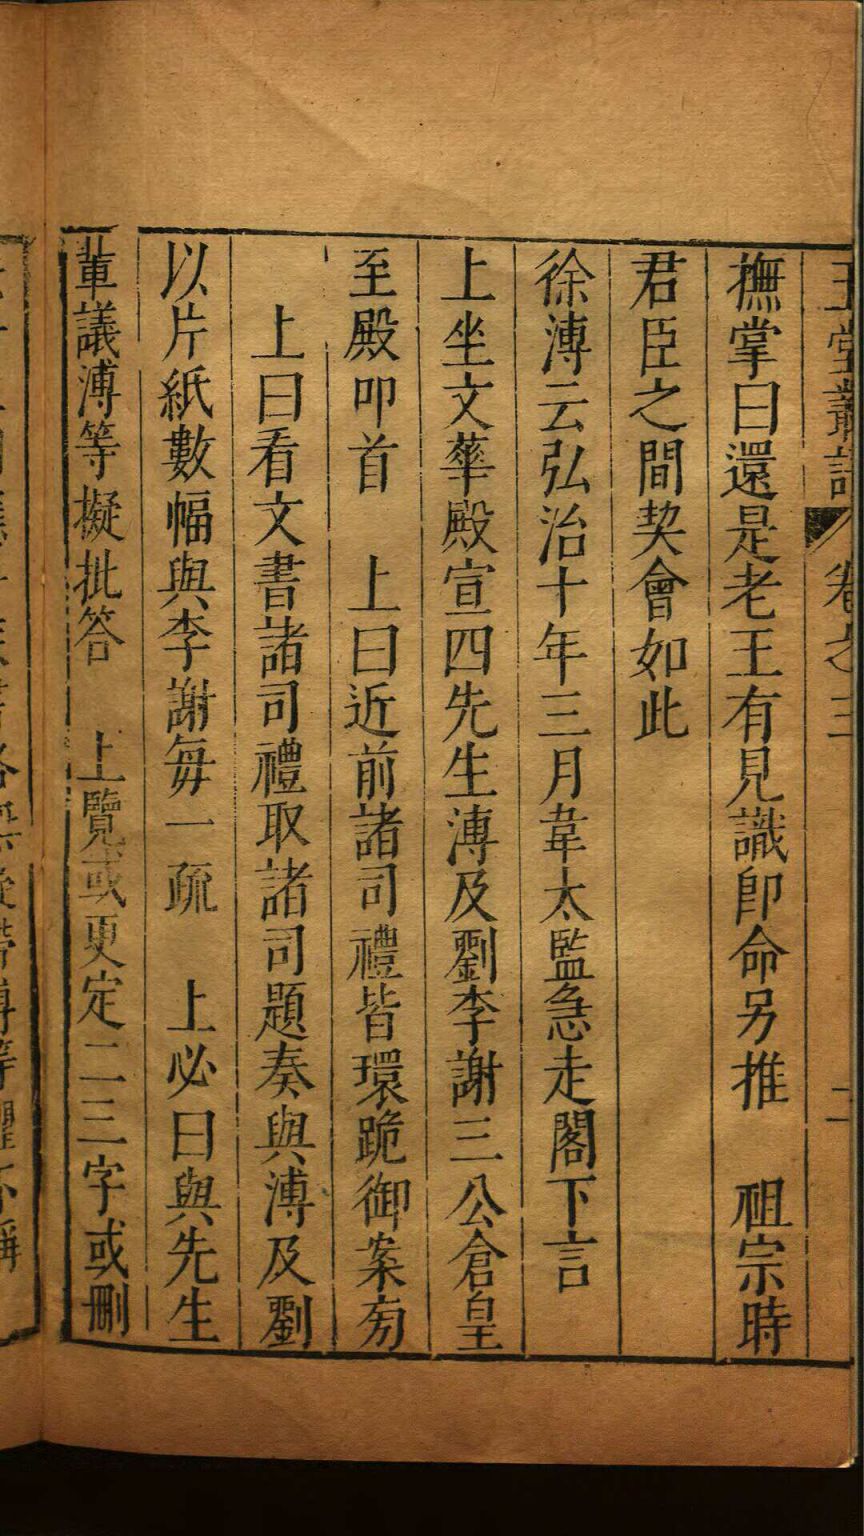 玉堂叢語 卷之三 二
撫掌曰還是老王有見識卽命另推 祖宗時
君臣之間契會如此
徐溥云弘治十年三月韋太監急走閣下言
上坐文華殿宣四先生溥及劉李謝三公倉皇
至殿叩首 上曰近前諸司禮皆環跪御案旁
上曰看文書諸司禮取諸司題奏與溥及劉
以片紙數幅與李謝每一疏 上必曰與先生
輩議溥等擬批答 上覽或更定二三字或刪